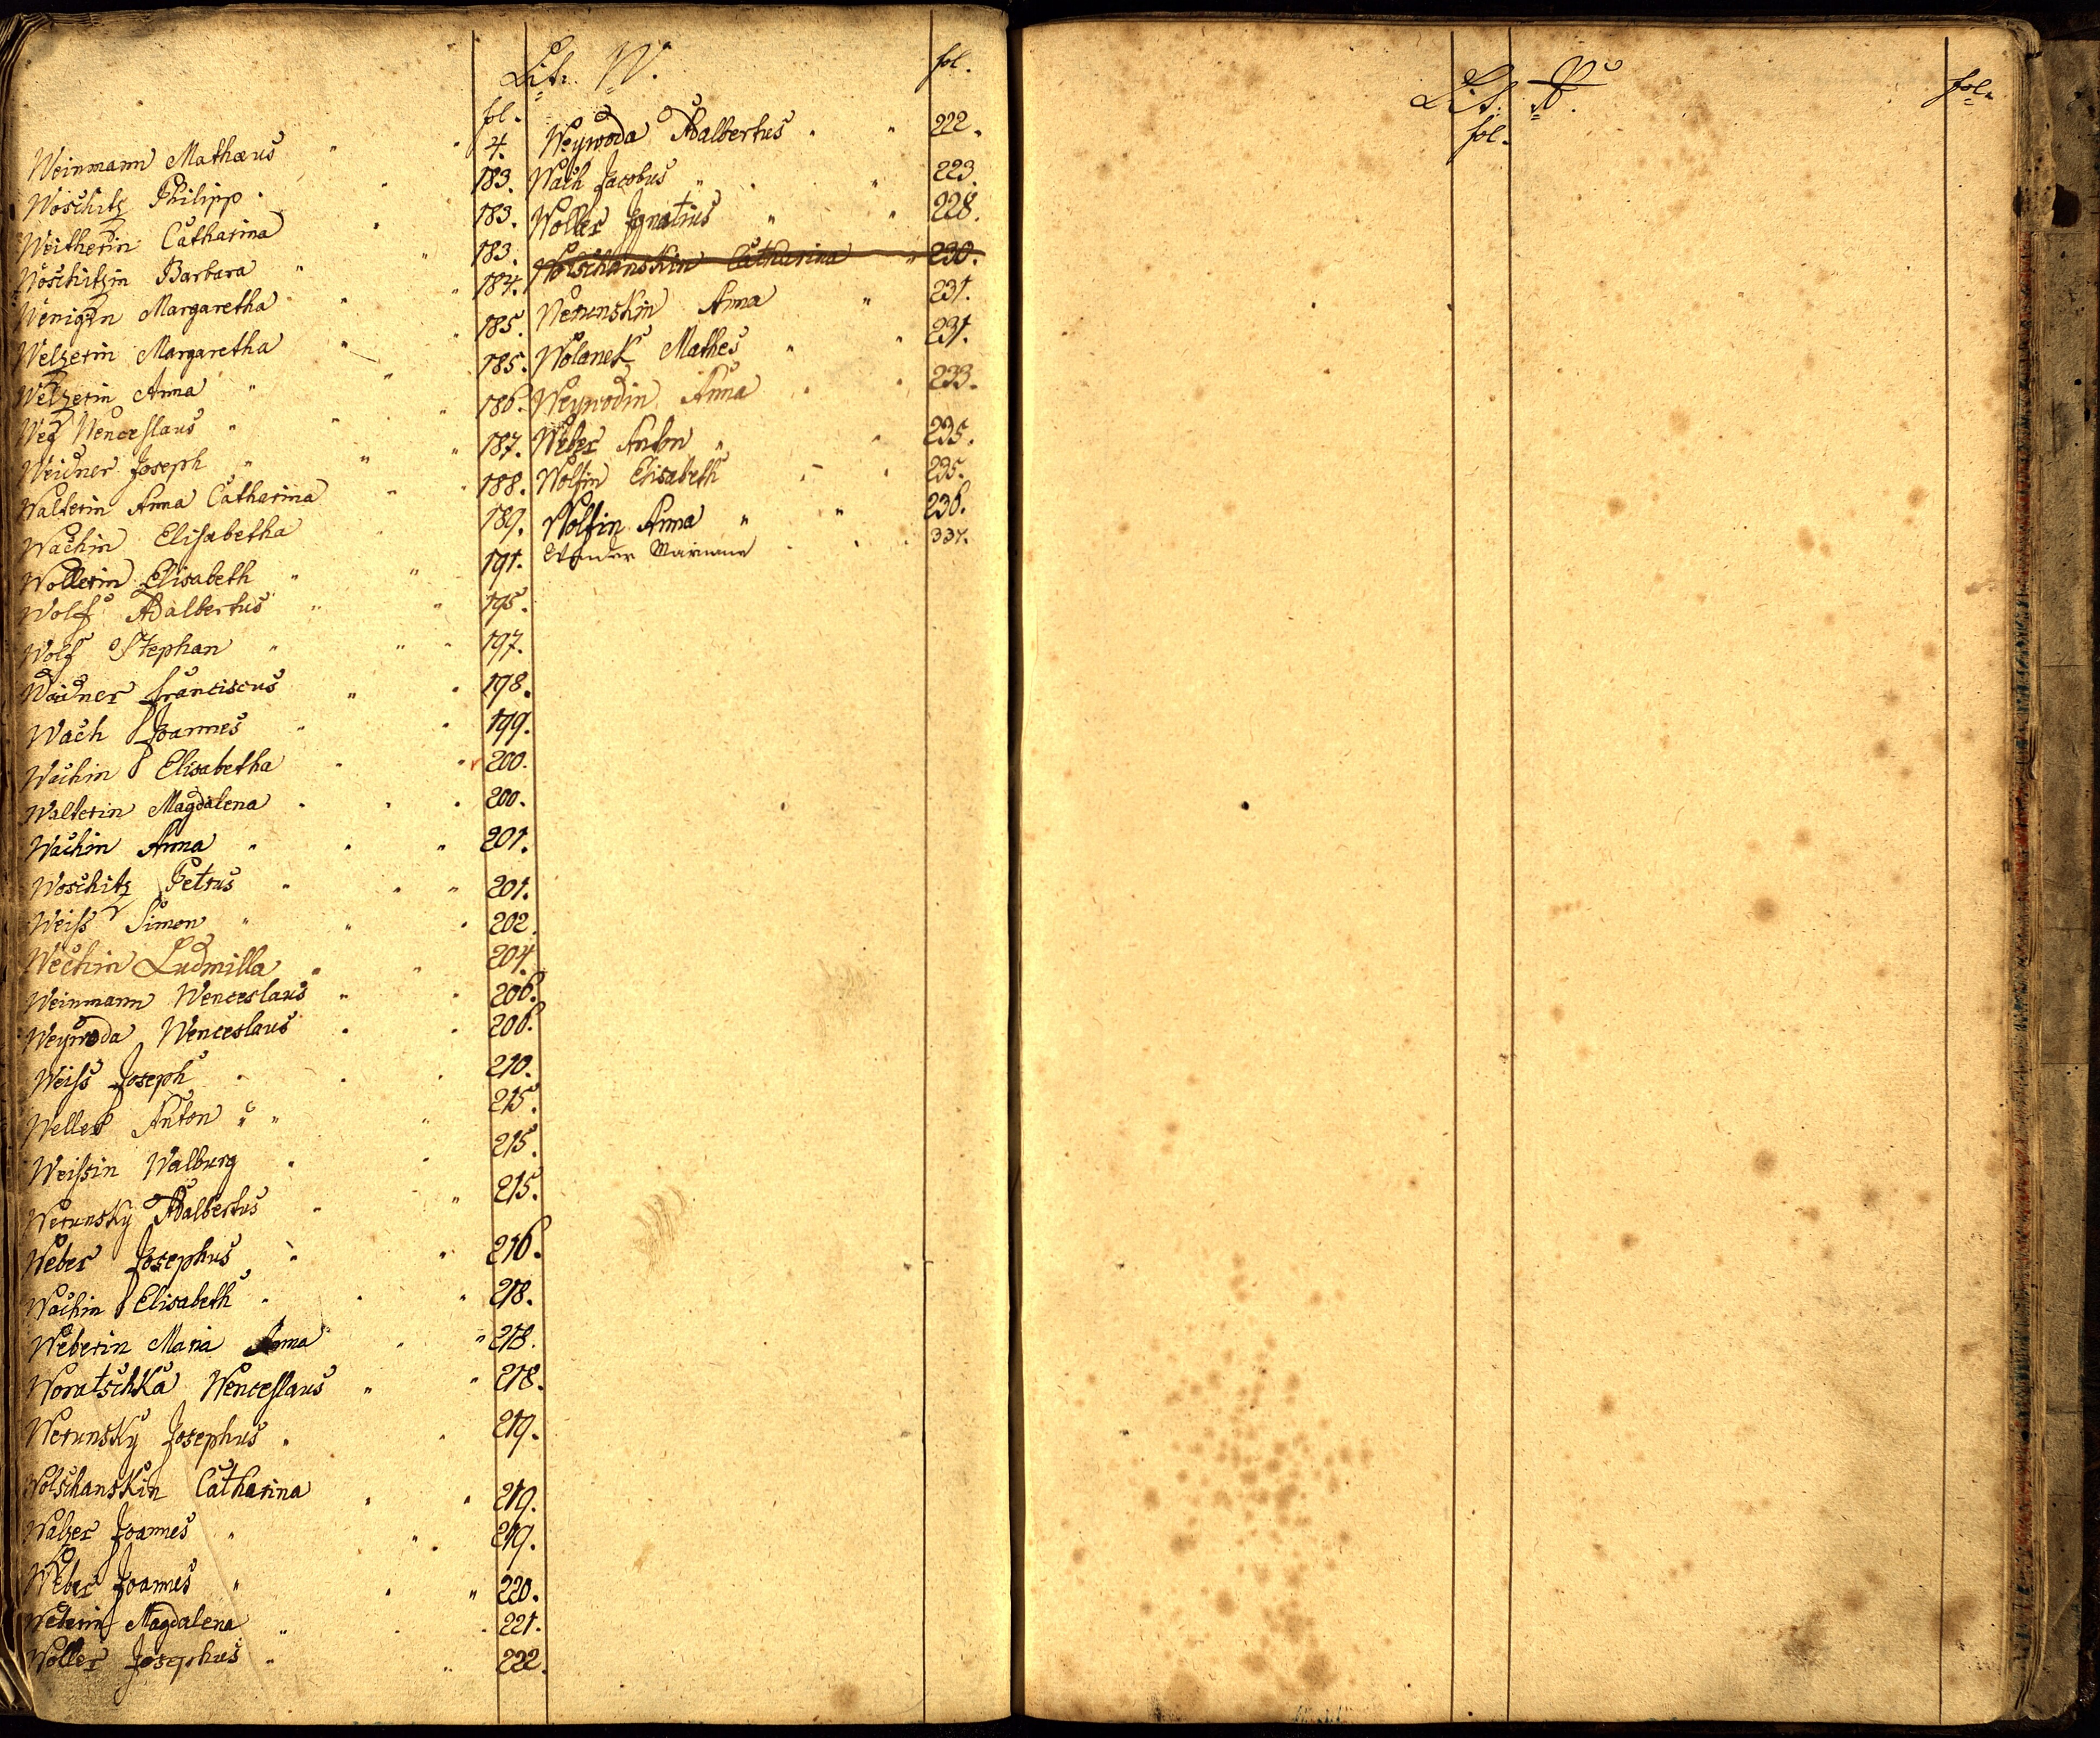 Lit: W.
fol.
Weinmann Mathæus 4.
Woschitz Philipp 183.
Weitherin Catharina 183.
Woschitzin Barbara 183.
Wenigin Margaretha 184.
Welzerin Margaretha 185.
Welzerin Anna 185.
Wenceslaus 186.
Weidner Joseph 187.
Walterin Anna Catharina 188.
Wachin Elisabetha 189.
Wollerin Elisabeth 191.
Wolf Adalbertus 195.
Wolf Stephan 197.
Waidner Franciscus 198.
Wach Joannes 199.
Wachin Elisabetha 200.
Walterin Magdalena 200.
Wachin Anna 201.
Woschitz Petrus 201.
Weiss Simon 202.
Wechin Ludmilla 204.
Weinmann Wenceslaus 206.
Weywoda Wenceslaus 206.
Weiss Joseph 210.
Weller Anton 215.
Weissin Walburg 215.
Werunsky Adalbertus 215.
Weber Josephus 216.
Wachin Elisabeth 218.
Weberin Maria Anna 218.
Woratschka Wenceslaus 218.
Werunsky Josephus 219.
Wolschanskin Catharina 219.
Walzer Joannes 219.
Weber Joannes 220.
Magdalena 221.
Woller Josephus 222.
fol.
Weywoda Adalbertus 222.
Wach Jacobus 223.
Woller Ignatius 228.
Wolschanskin Catharina 230.
Werunskin Anna 231.
Wolanek Mathes 231.
Weywodin Anna 233.
Weber Anton 235.
Wolfin Elisabeth 235.
Wolfin Anna 236.
Mariana 337.
Lit: X.
fol.
fol.